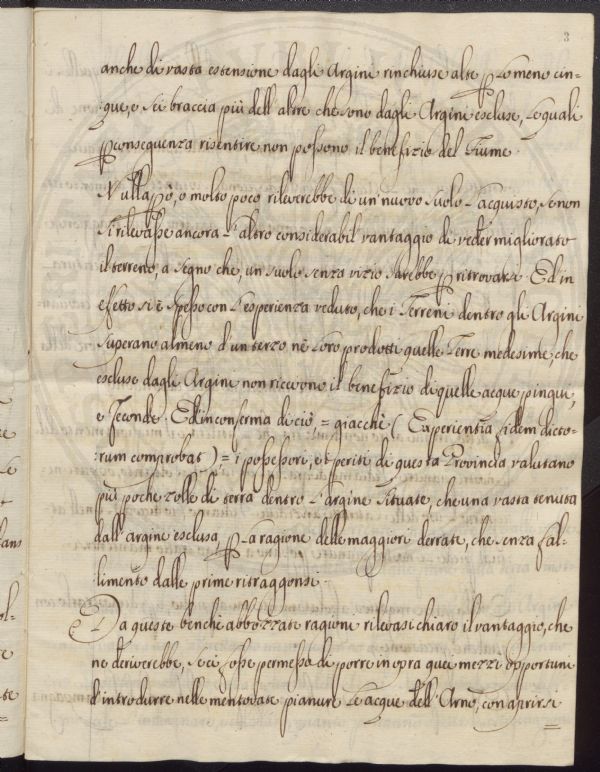 3
anche di vasta estensione dagli Argini rinchiuse alte p lo meno cin-
:que, o sei braccia più dell'altre che sono dagli Argini escluse, le quali
p conseguenza risentire non possono il benefizio del Fiume.
Nulla pò, o molto poco rileverebbe di un nuovo suolo l'acquisto, se non
si rilevasse ancora l'altro considerabil vantaggio di veder migliorato
il terreno, a segno che, un suolo senza vizio sarebbe p ritrovarsi. Ed in
efetto si è spesso con l'esperienza veduto, che i Terreni dentro gli Argini
superano almeno d'un terzo ne loro prodotti quelle Terre medesime, che
escluse dagli Argini non ricevono il benefizio di quelle acque pingui,
e feconde. Ed in conferma di ciò, = giacchè ( Experientia fidem dicto-
:rum comprobat ), = i possessori, et periti di questa Provincia valutano
più poche zolle di terra dentro l'argine situate, che una vasta tenuta
dall'argine esclusa p la ragione delle maggiori derrate, che senza fal-
:limento dalle prime ritraggonsi.
Da queste benchè abbozzate ragioni rilevasi chiaro il vantaggio, che
ne deriverebbe, se ci fosse permesso di porre in opra que' mezzi opportuni
d'introdurre nelle mentovate pianure le acque dell'Arno, con aprirsi
=